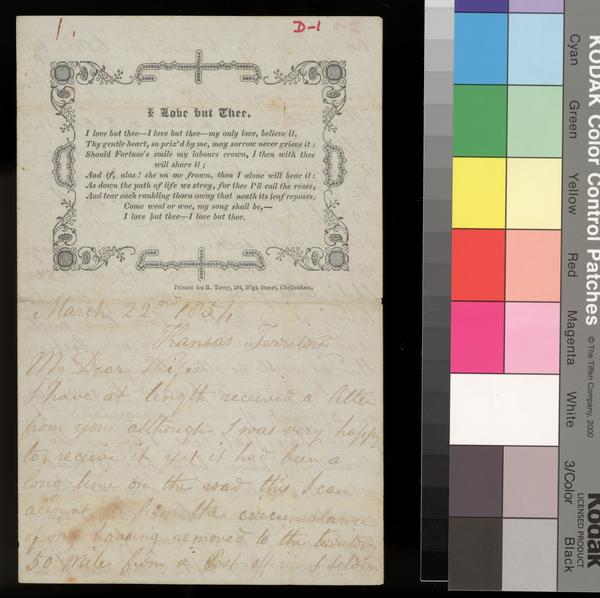 1.
D-1
I Love but Thee.
I love but thee—I love but thee—my only love, believe it,
Thy gentle heart, so priz'd by me, may sorrow never grieve it:
Should Fortune's smile my labours crown, I then with thee
will share it;
And if, alas! she on me frown, then I alone will bear it:
As down the path of life we stray, for thee I'll cull the roses,
And tear each rankling thorn away that neath its leaf reposes,
Come weal or woe, my song shall be,—
I love but thee—I love but thee.
Printed for R. Tovey, 284, High Street, Cheltenham.
March 22nd 1854
Kansas Territory
My Dear Wife
I have at length received a letter
from you although I was very happy
to receive it yet it had been a
long time on the road this I can
account for from the circumstance
of our having removed to the
50 miles from a Post office I seldom
KODAK Color Control Patches
© The Tiffen Company, 2000
Kodak
LICENSED PRODUCT
Cyan
Green
Yellow
Red
Magenta
White
3/Color
Black